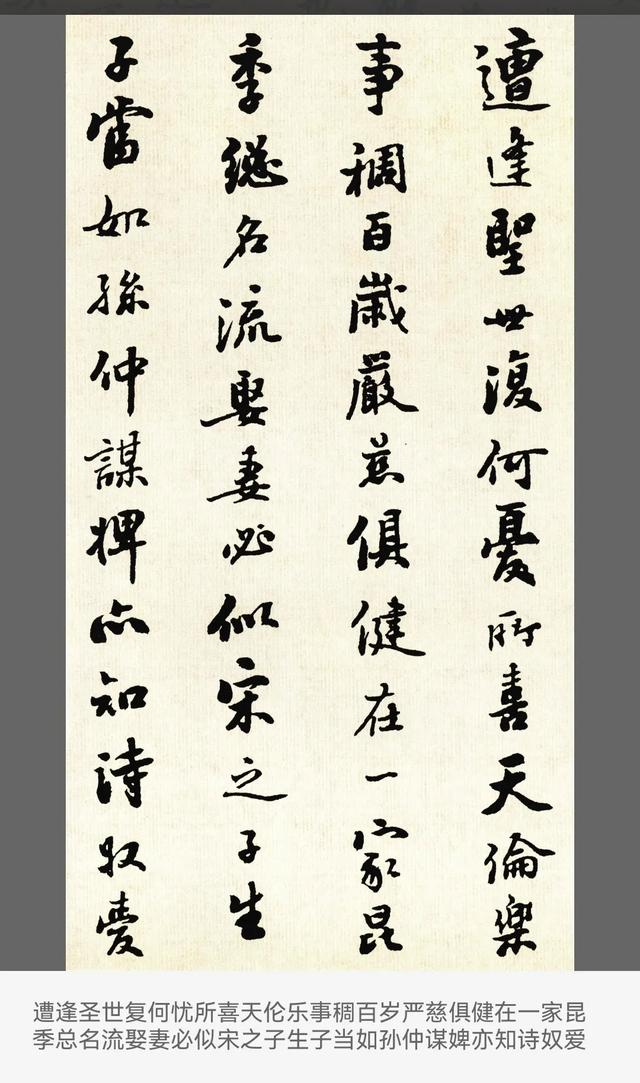 遭逢聖世復何憂所喜天倫樂
事稠百歲嚴慈俱健在一家昆
季總名流娶妻必似宋之子生
子當如孫仲謀婢亦知詩奴愛
遭逢圣世复何忧所喜天伦乐事稠百岁严慈俱健在一家昆
季总名流娶妻必似宋之子生子当如孙仲谋婢亦知诗奴爱